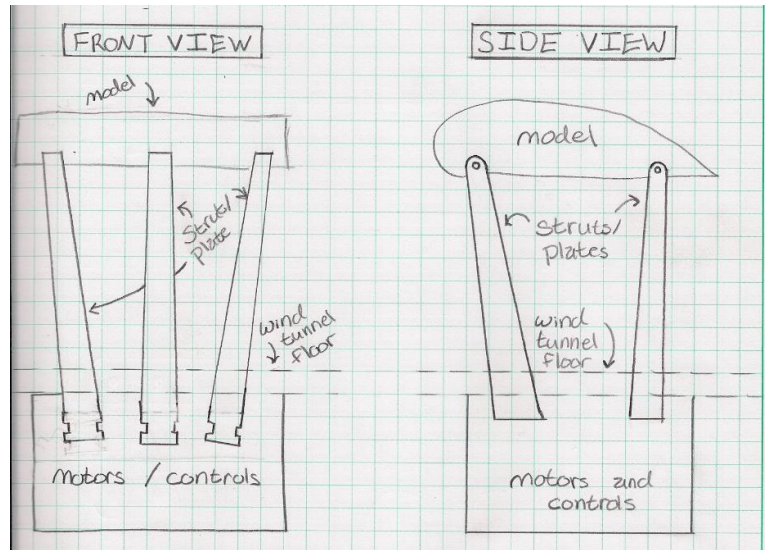 FRONT VIEW
model
Struts/
plate
wind
tunnel
floor
motors / controls
SIDE VIEW
model
Struts/
plates
wind
tunnel
floor
motors and
controls